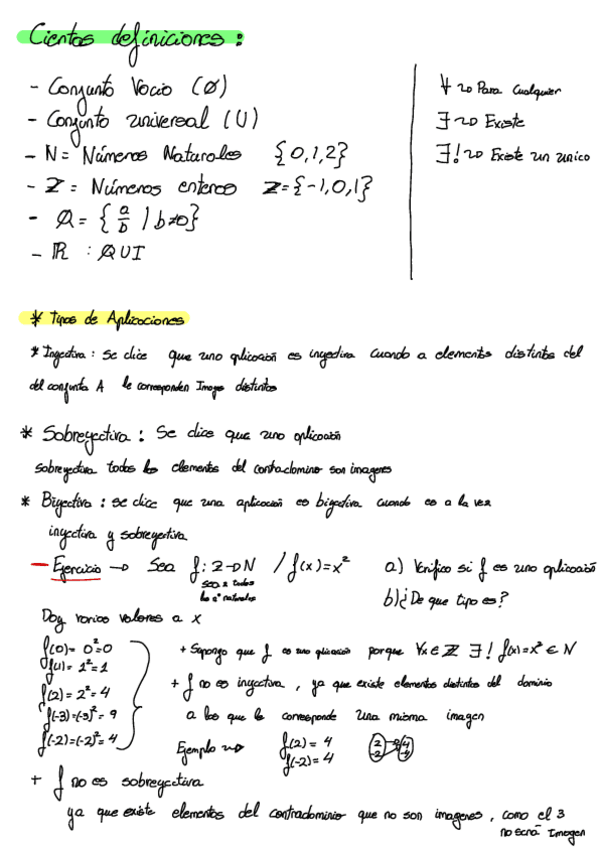 Ciertas definiciones:
- Conjunto Vacio (∅)
- Conjunto universal (U)
- N = Números Naturales {0,1,2}
- Z = Números enteros Z={-1,0,1}
- Q = {a/b / b≠0}
- ℝ : Q U I
∀ ~> Para Cualquier
∃ ~> Existe
∃! ~> Existe un unico
* Tipos de Aplicaciones
* Inyectiva: Se dice que una aplicación es inyectiva cuando a elementos distintos del
del conjunto A le corresponden Images distintos
* Sobreyectiva: Se dice que una aplicación
sobreyectiva todos los elementos del contradominio son imagenes
* Biyectiva: se dice que una aplicación es biyectiva cuando es a la vez
inyectiva y sobreyectiva
- Ejercicio -> Sea f: Z->N / f(x)=x² a) Verifico si f es una aplicación
los nº naturales b)¿De que tipo es?
Doy varios valores a x
f(0)= 0²=0
f(1)= 1²=1
f(2)= 2²= 4
f(-3)=(-3)²= 9
f(-2)=(-2)²= 4
+ Supongo que f es una aplicación porque ∀x∈Z ∃! f(x)=x² ∈ N
+ f no es inyectiva, ya que existe elementos distintos del dominio
a los que le corresponde una misma imagen
Ejemplo ~> f(2)= 4
f(-2)= 4
2 4
-2
+ f no es sobreyectiva
ya que existe elementos del contradominio que no son imagenes, como el 3
no será Imagen